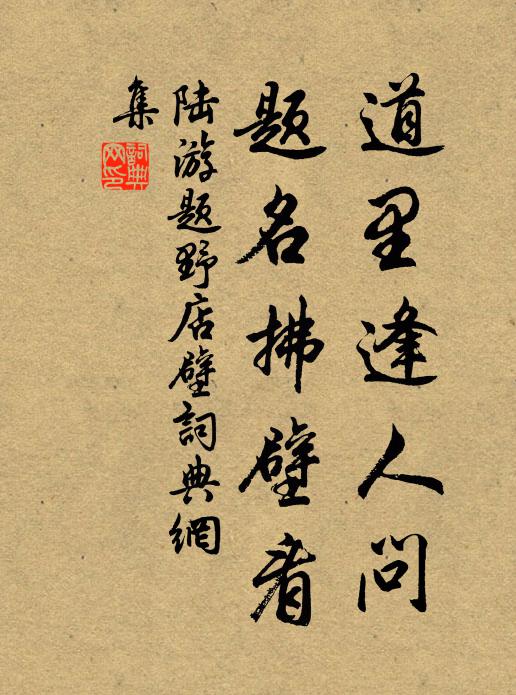 道里逢人问
题名拂壁看
陆游题野店壁词典網
集
詞典
网印